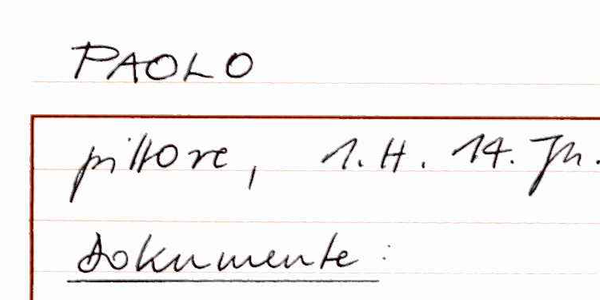 PAOLO
pittore, 1. H. 14. Jh.
Dokumente: